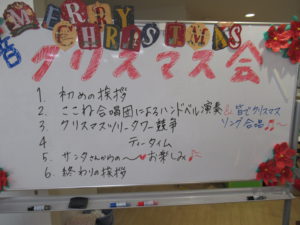 MERRY
CHRISTMAS
クリスマス会
1. 初めの挨拶
2. ここね合唱団によるハンドベル演奏 & 皆でクリスマス
ソング合唱♫〜
3. クリスマスツリータワー競争
4 ティータイム
5. サンタさんからの〜♥お楽しみ♫
6. 終わりの挨拶